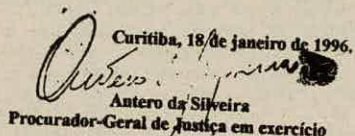 Curitiba, 18 de janeiro de 1996.
Antero da Silveira
Procurador-Geral de Justiça em exercício